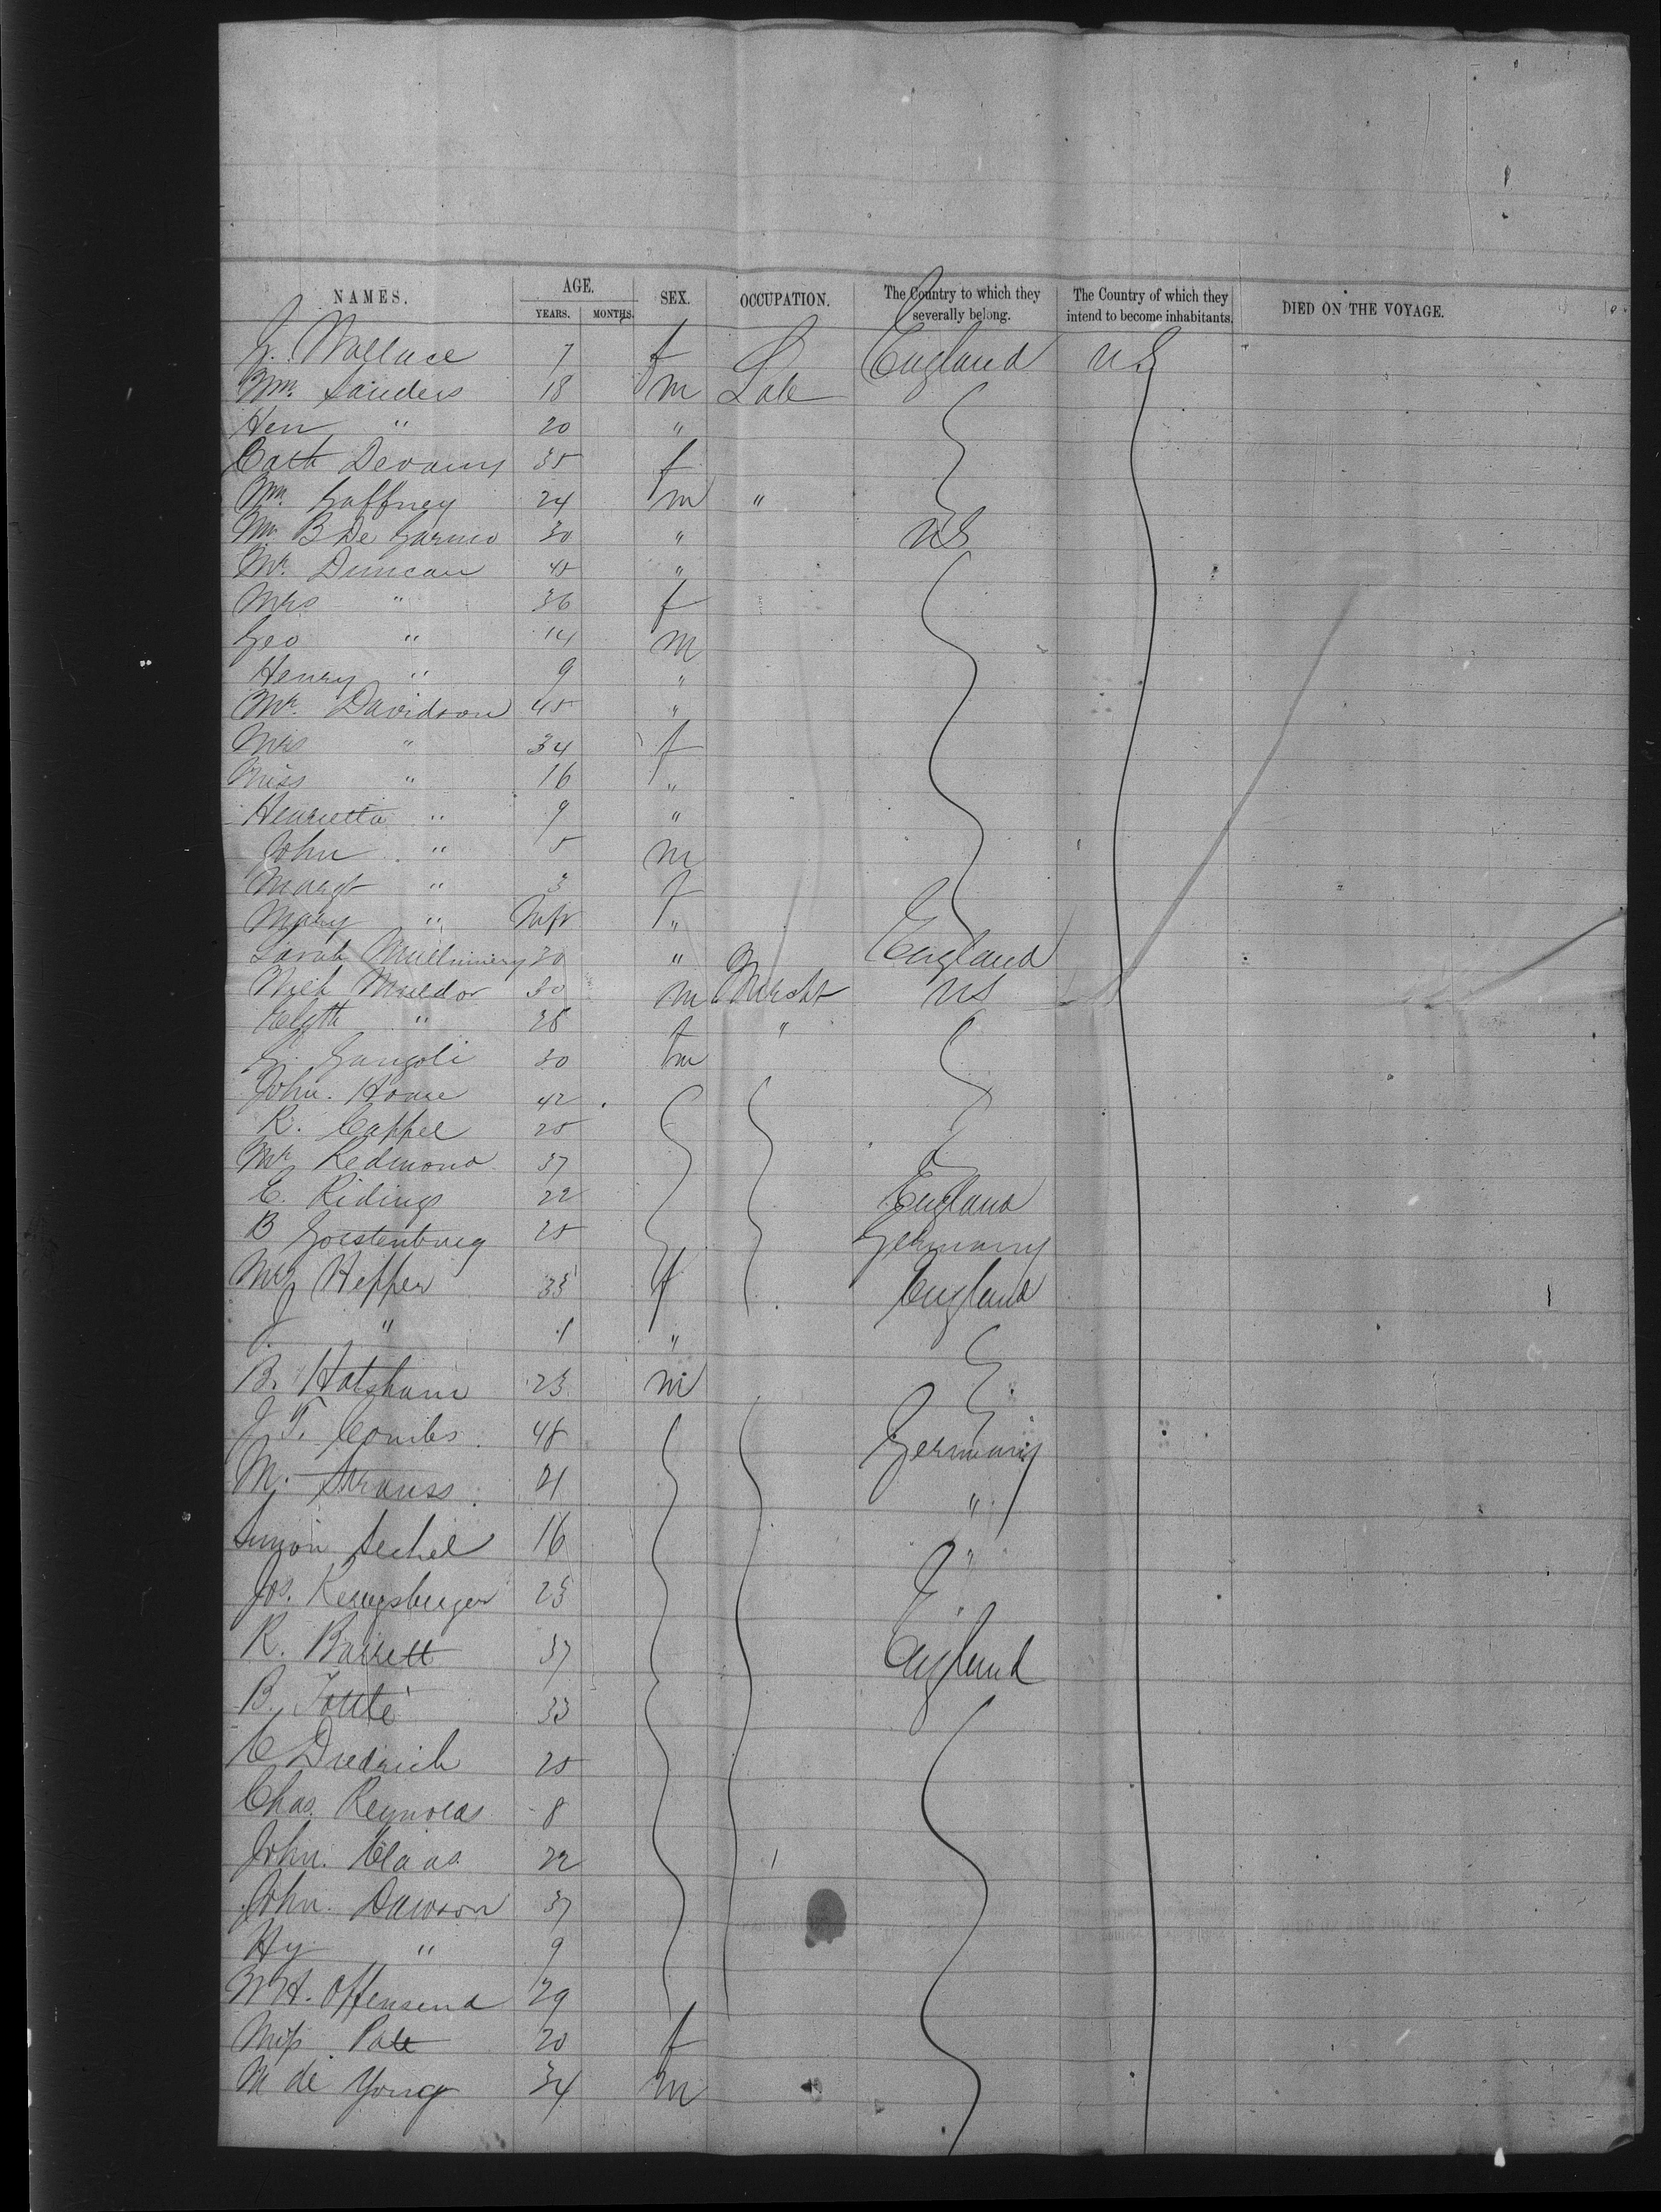 NAMES. AGE. SEX. OCCUPATION. The Country to which they severally belong. The Country of which they intend to become inhabitants. DIED ON THE VOYAGE.
YEARS. MONTHS.
Wallace 7 f England US
Wm. Sanders 18 m Lab
Hen " 20 "
Cath Devany 35 f
Wm Gaffney 24 m "
B De 30 " US
Mr. Duncan 45 "
Mrs " 36 f
Geo " 14 m
Henry " 9 "
Mr. Davidson 45 "
Mrs " 34 f
Miss " 16 "
Henrietta " 9 "
John " 5 m
Margt " 3 f
Mary " Inft "
Sarah 20 " England
Muldor 30 m Mercht US
Elizth " 28 f "
Gangoli 30 m
John. Howe 42
R. Cappel 25
Mr Redmond 37
E. Ridings 22 England
B 25 Germany
Mrs Hepper 35 f England
J. " 1 "
B. Hatsham 23 m
J. T. Combs 48 Germany
M. Strauss 21 "
Simon Sechel 16 "
Jos. 25
R. Barrett 37 England
B. 33
C Diedrich 25
Chas. Reynolds 8
John. Claas 22
John. Dawson 37
Hy " 9
W H. Offensend 29
Miss Pate 20 f
M de Yong 34 m